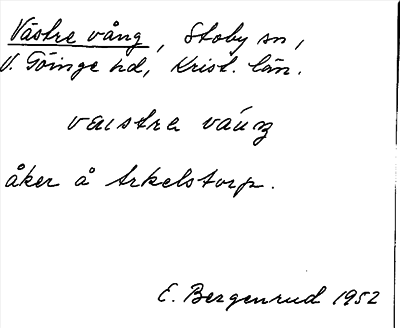 Västre vång, Stoby sn,
V. Göinge hd, Krist. län.
vaustra váuz
åker å Arkelstorp.
E. Bergenrud 1952